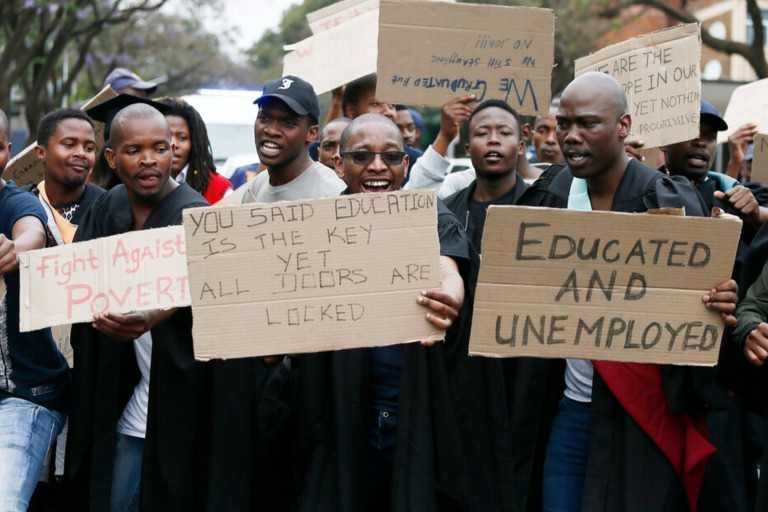 WE GRADUATED BUT
WE ARE THE
YET NOTHIN
PROGRESSIVE
Fight Against
POVERT
YOU SAID EDUCATION
IS THE KEY
YET
ALL DOORS ARE
LOCKED
EDUCATED
AND
UNEMPLOYED